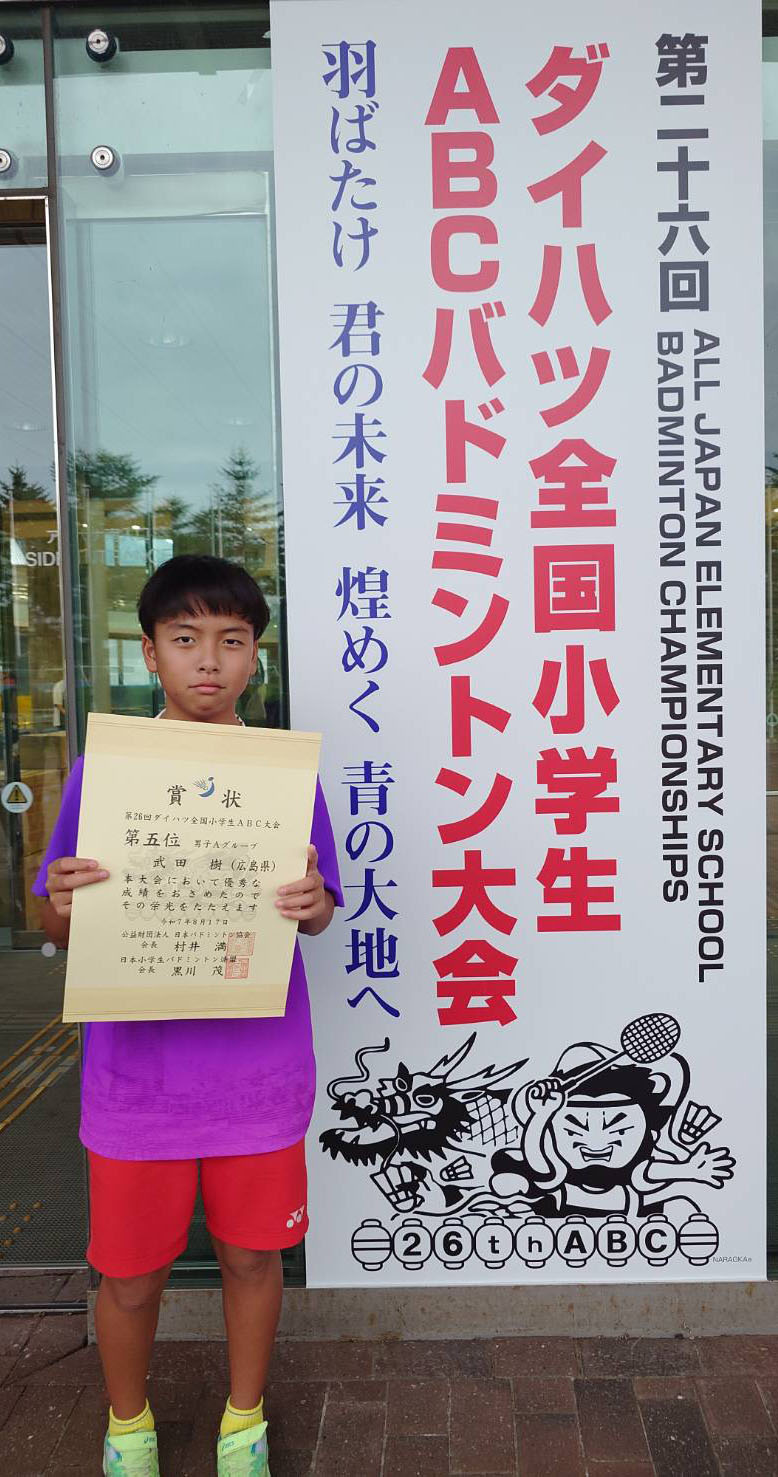 第二十六回
ALL JAPAN ELEMENTARY SCHOOL
BADMINTON CHAMPIONSHIPS
ダイハツ全国小学生
ABCバドミントン大会
羽ばたけ 君の未来 煌めく 青の大地へ
26thABC
NARAOKA
賞状
第26回ダイハツ全国小学生ABC大会
第五位 男子Aグループ
武田 樹(広島県)
本大会において優秀な
成績をおさめたので
その栄光をたたえます
令和7年8月17日
公益財団法人 日本バドミントン協会
会長 村井 満
日本小学生バドミントン連盟
会長 黒川 茂